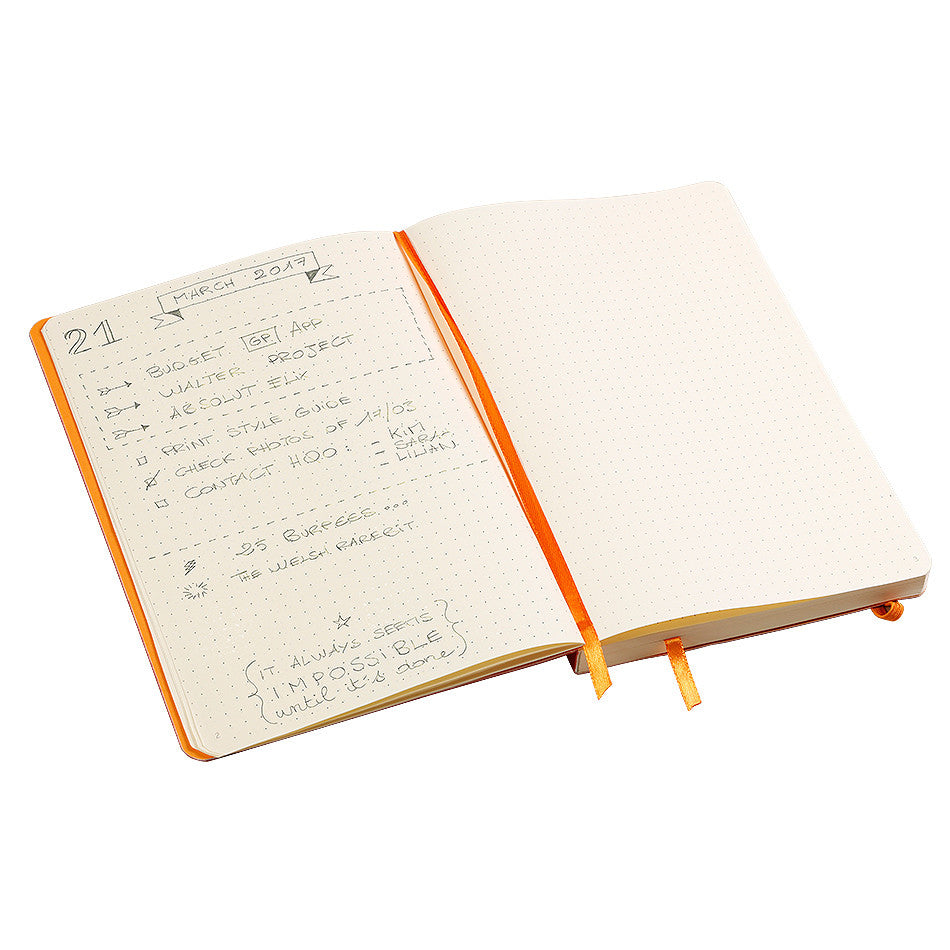 MARCH 2017
21
BUDGET GP. APP
WALTER PROJECT
ABSOLUT ELIX
PRINT STYLE GUIDE
CHECK PHOTOS OF 17/03
CONTACT HOO:
- KIM
- SARAH
- LILIAN
25 BURPEES...
THE WELSH RAREBIT
{IT ALWAYS SEEMS
IMPOSSIBLE
until it's done}
2
3